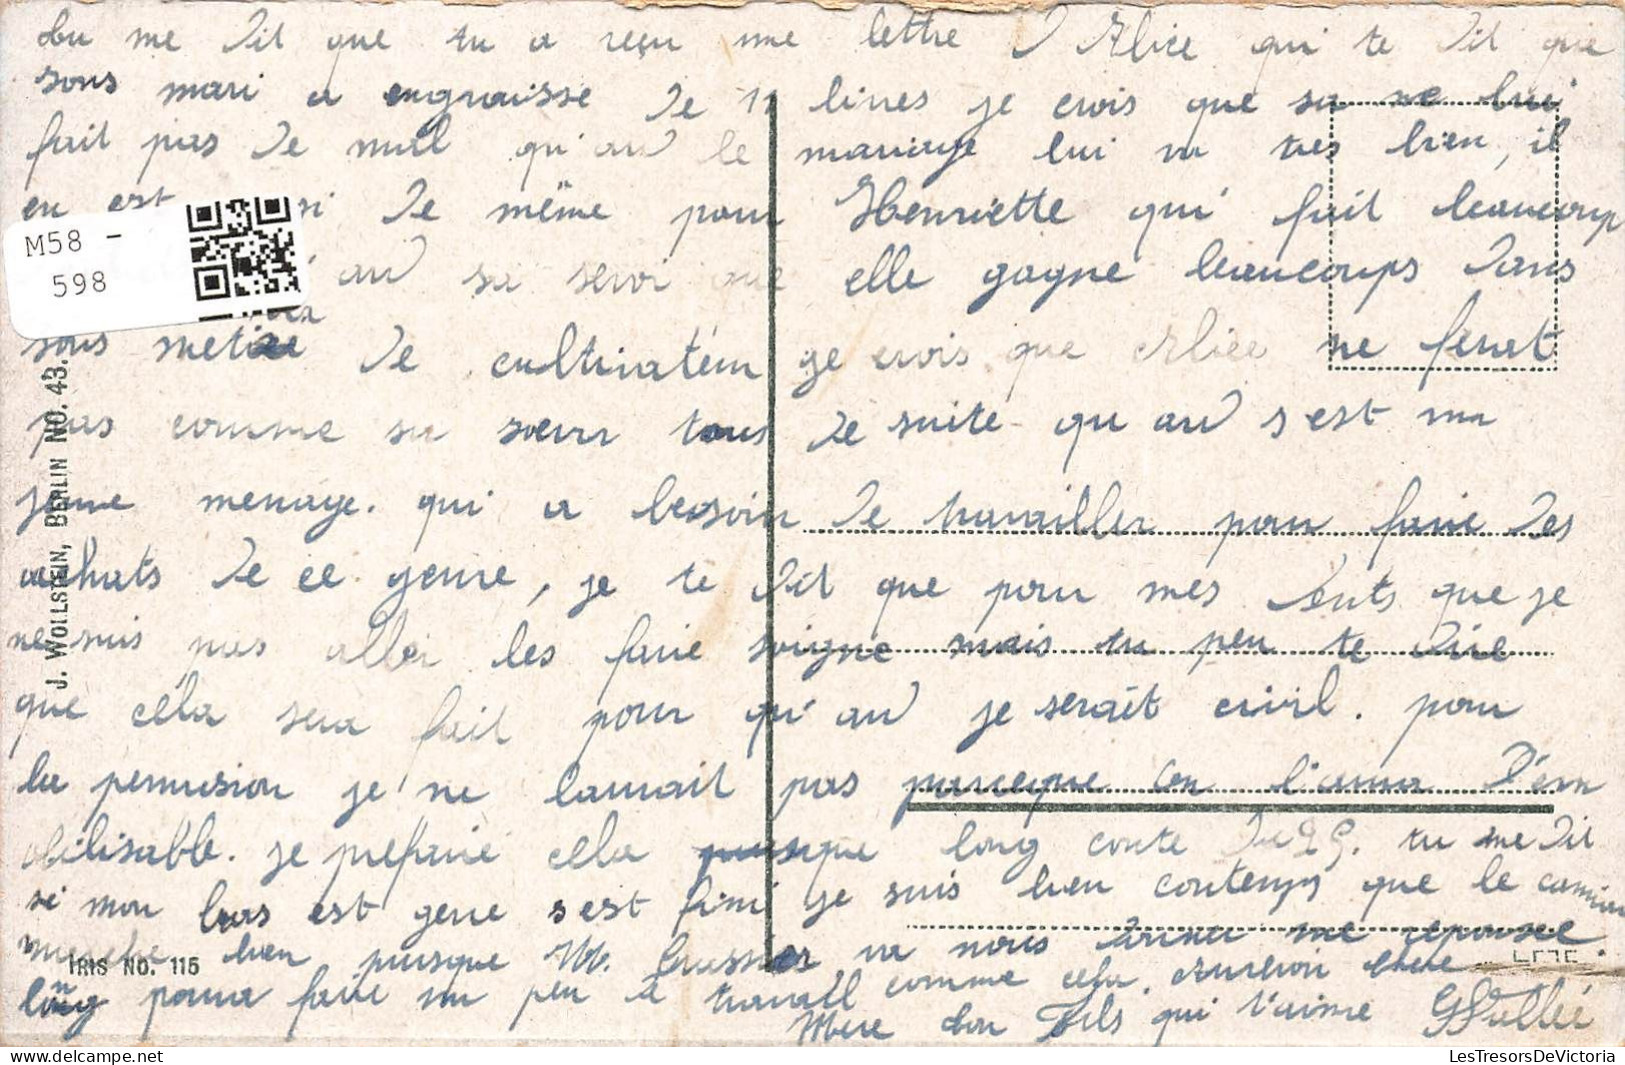 tu me dit que tu a reçu une lettre d Alice qui te dit que
sons mari a engraisse de 11 livres je crois que sa ne lui
fait pas de mal qu'and le mariage lui va tres bien, il
en est de même pour Henriette qui fait beaucoup
and sa servi que elle gagne beaucoups dans
sous metier de cultivateur je crois que Alice ne ferat
pas comme sa soeur tous de suite qu and s est un
jeune menage. qui a besoin de travailler pour faire des
achats de ce genre, je te dit que pour mes dents que je
ne suis pas aller les faire soigne mais tu peu te dire
que cela sera fait pour qu'and je serait civil. pour
la permision je ne l'aurait pas parceque on l'aura d'em
obilisable. je prefaire cela puisque long conte du 29. tu me dit
si mon bras est gene s est fini je suis bien contemps que le camion
marche bien puisque Mr. va nous me reposee
long pour faire un peu a travail comme cela. Aurevoir chere
Mere ton Fils qui t'aime GVallée
M58 -
598
J. WOLLSTEIN, BERLIN NO. 43.
IRIS NO. 115
LesTresorsDeVictoria